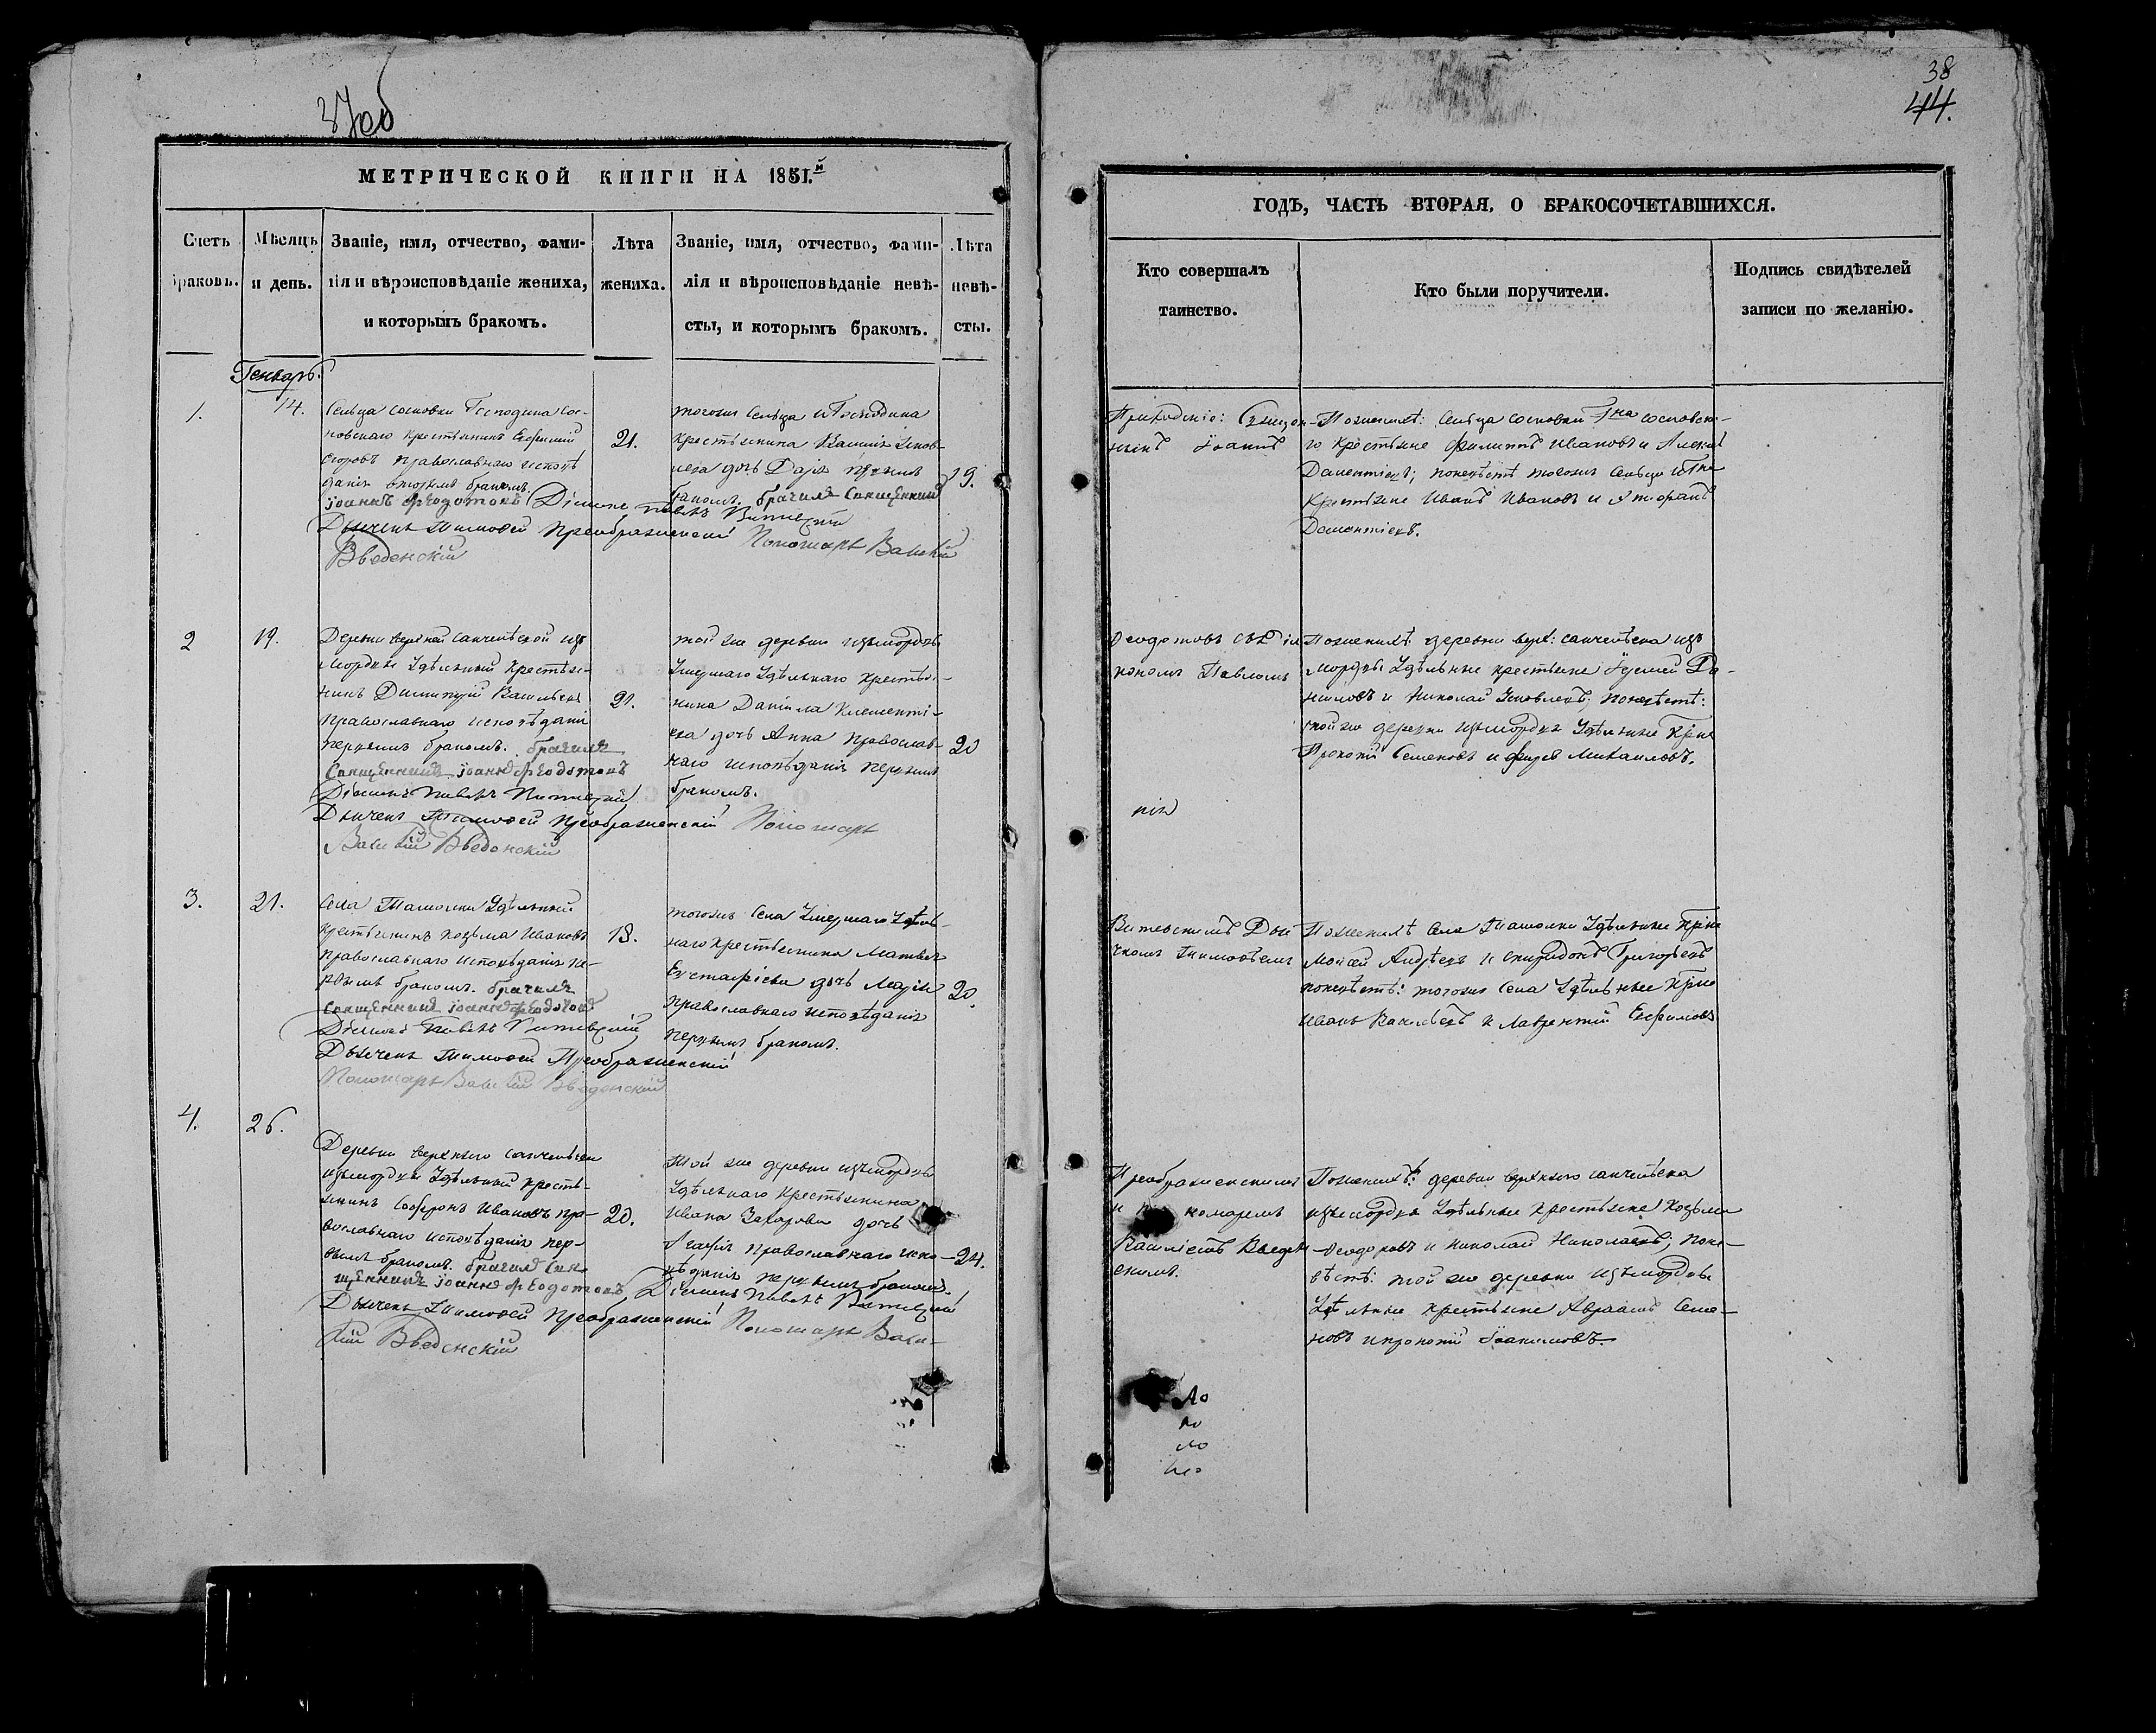 37об
МЕТРИЧЕСКОЙ КНИГИ НА 1851.й
Счетъ браковъ.
Мѣсяцъ и день.
Званіе, имя, отчество, фами-
лія и вѣроисповѣданіе жениха,
и которымъ бракомъ.
Лѣта
жениха.
Званіе, имя, отчество, фами-
лія и вѣроисповѣданіе невѣ-
сты, и которымъ бракомъ.
Лѣта
невѣ-
сты.
Генварь.
1.
14.
Сельца Сосновки Господина Сос-
новскаго крестьянинъ Евфимій
православнаго исповѣ
данія вторымъ бракомъ.
21.
тогожъ Сельца и Господина
крестьянина Василія Яков-
лева дочь Дарья первымъ
бракомъ. брачилъ Священникъ
19.
Іоаннъ Ѳеодотовъ Діаконъ Павелъ Витевскій
Дьячекъ Тимоѳей Преображенскій Пономарь Василій
Введенскій
2
19.
Деревни верхней Санчелѣевой изъ
Мордвы Удѣльный крестья-
нинъ Димитрій Васильевъ
православнаго исповѣданія
первымъ бракомъ. брачилъ
Священникъ Іоаннъ Ѳеодотовъ
Діаконъ Павелъ Витевскій
Дьячекъ Тимоѳей Преображенскій Пономарь
Василій Введенскій
21.
той же деревни изъ мордвы
Умершаго Удѣльнаго крестья-
нина Даніила Клементі-
ева дочь Анна Православ-
наго исповѣданія первымъ
бракомъ.
20
3.
21.
Села Ташолки Удѣльный
крестьянинъ Козьма Ивановъ
православнаго исповѣданія пе-
рвымъ бракомъ. брачилъ
Священникъ Іоаннъ Ѳеодотовъ
Діаконъ Павелъ Витевскій
Дьячекъ Тимоѳей Преображенскій
Пономарь Василій Введенскій
18.
тогожъ Села Умершаго Удѣль-
наго крестьянина Матвея
Евстафіева дочь Марія
православнаго исповѣданія
первымъ бракомъ.
20.
4.
26.
Деревни верхняго Санчелѣева
изъ мордвы Удѣльный кресть-
янинъ Софронъ Ивановъ пра-
вославнаго исповѣданія пер-
вымъ бракомъ. брачилъ Свя-
щенникъ Іоаннъ Ѳеодотовъ Діаконъ Павелъ Витевскій
Дьячекъ Тимоѳей Преображенскій Пономарь Васи-
лій Введенскій
20.
Той же деревни изъ мордвы
Удѣльнаго крестьянина
Ивана Захарова дочь
Агафія православнаго испо-
вѣданія первымъ бракомъ.
24.
38
44.
ГОДЪ, ЧАСТЬ ВТОРАЯ, О БРАКОСОЧЕТАВШИХСЯ.
Кто совершалъ
таинство.
Кто были поручители.
Подпись свидѣтелей
записи по желанію.
Приходскіе: Священ-
никъ Іоаннъ
По женихѣ: Сельца Сосновки Гна Сосновска-
го крестьяне Филиппъ Ивановъ и Алексѣй
Дементіевъ; по невѣстѣ тогожъ Сельца и Гна
Крестьяне Иванъ Ивановъ и
Дементіевъ.
Ѳеодотовъ съ Діа
кономъ Павломъ
По женихѣ: деревни верх: Санчелѣева изъ
мордвы Удѣльные крестьяне Да-
ниловъ и Николай Яковлевъ; По невѣстѣ:
той же деревни изъ мордвы Удѣльные Крне
Прокопій Семеновъ и Ѳедоръ Михаиловъ.
Витевскимъ Дья
чкомъ Тимоѳеемъ
По женихѣ Села Ташолки Удѣльные Крне
Моисей Андреевъ и Спиридонъ Григорьевъ
по невѣстѣ: тогожъ Села Удѣльные Крне
Иванъ Васильевъ и Лаврентій Евфимовъ
Преображенскимъ
и пономаремъ
Василіемъ Введен
скимъ.
По женихѣ: деревни верхняго Санчелѣева
изъ мордвы Удѣльные крестьяне Козьма
Ѳеодоровъ и Николай Николаевъ; По не-
вѣстѣ: той же деревни изъ мордвы
Удѣльные крестьяне Авраамъ Семе-
новъ и Прокопій Іоакимовъ.